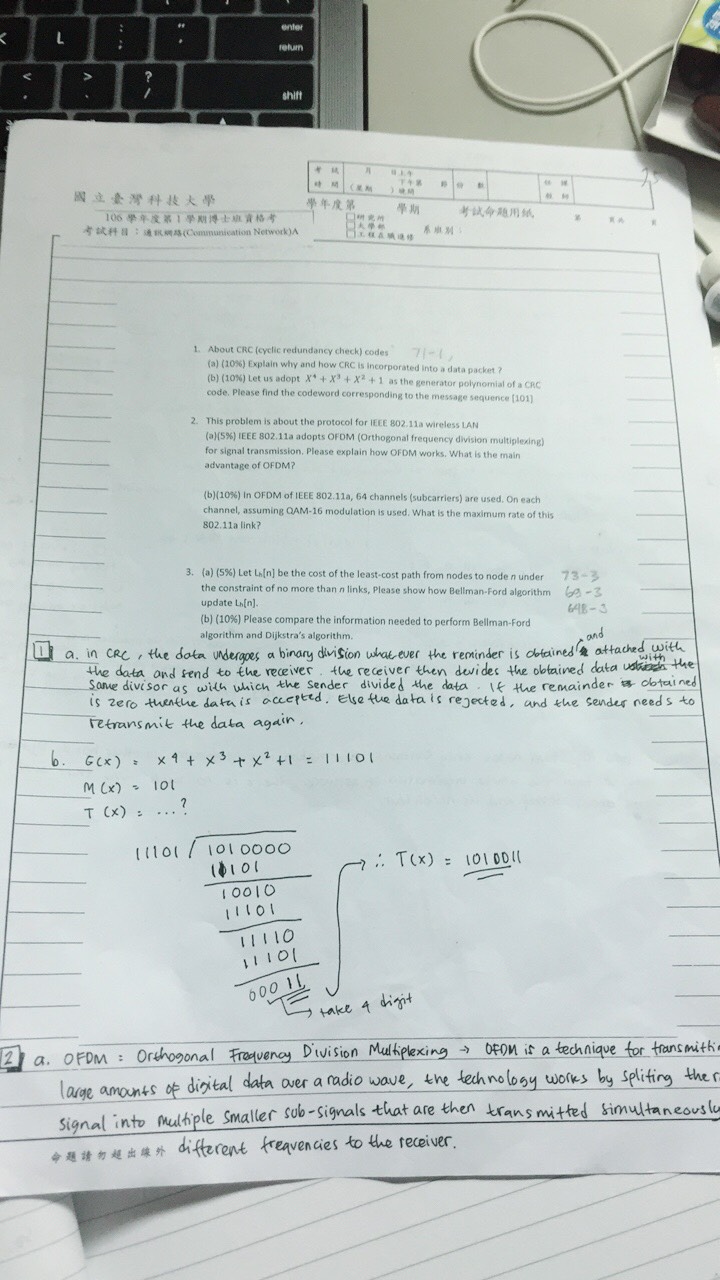 L
: ;
" '
enter
return
< ,
> .
? /
shift
國立臺灣科技大學
106 學年度第 1 學期博士班資格考
考試科目：通訊網路(Communication Network)A
考試時間
月 日上午
(星期 )
下午第 節
晚間
份數
任課教師
學年度第 學期 考試命題用紙 第 頁共 頁
研究所
大學部
工程在職進修
系班別：
1. About CRC (cyclic redundancy check) codes 71-1,
(a) (10%) Explain why and how CRC is incorporated into a data packet ?
(b) (10%) Let us adopt X⁴ + X³ + X² + 1 as the generator polynomial of a CRC
code. Please find the codeword corresponding to the message sequence [101]
2. This problem is about the protocol for IEEE 802.11a wireless LAN
(a)(5%) IEEE 802.11a adopts OFDM (Orthogonal frequency division multiplexing)
for signal transmission. Please explain how OFDM works. What is the main
advantage of OFDM?
(b)(10%) In OFDM of IEEE 802.11a, 64 channels (subcarriers) are used. On each
channel, assuming QAM-16 modulation is used. What is the maximum rate of this
802.11a link?
3. (a) (5%) Let Lₕ[n] be the cost of the least-cost path from nodes to node n under 73-3
the constraint of no more than n links, Please show how Bellman-Ford algorithm 69-3
update Lₕ[n].
(b) (10%) Please compare the information needed to perform Bellman-Ford
algorithm and Dijkstra's algorithm.
1 a. in CRC, the data undergoes a binary division what ever the reminder is obtained and attached with
the data and send to the receiver. the receiver then devides the obtained data with the
same divisor as with which the sender divided the data. If the remainder obtained
is zero then the data is accepted. Else the data is rejected, and the sender needs to
retransmit the data again.
b. G(x) = x4 + x3 + x2 + 1 = 11101
M(x) = 101
T(x) = ...?
11101 / 1010000
11101
10010
11101
11110
11101
00011
take 4 digit
∴ T(x) = 1010011
2 a. OFDM = Orthogonal Frequency Division Multiplexing → OFDM is a technique for transmitin
large amounts of digital data over a radio wave, the technology works by spliting the r
signal into multiple smaller sub-signals that are then transmitted simultaneously
命題請勿超出線外 different frequencies to the receiver.